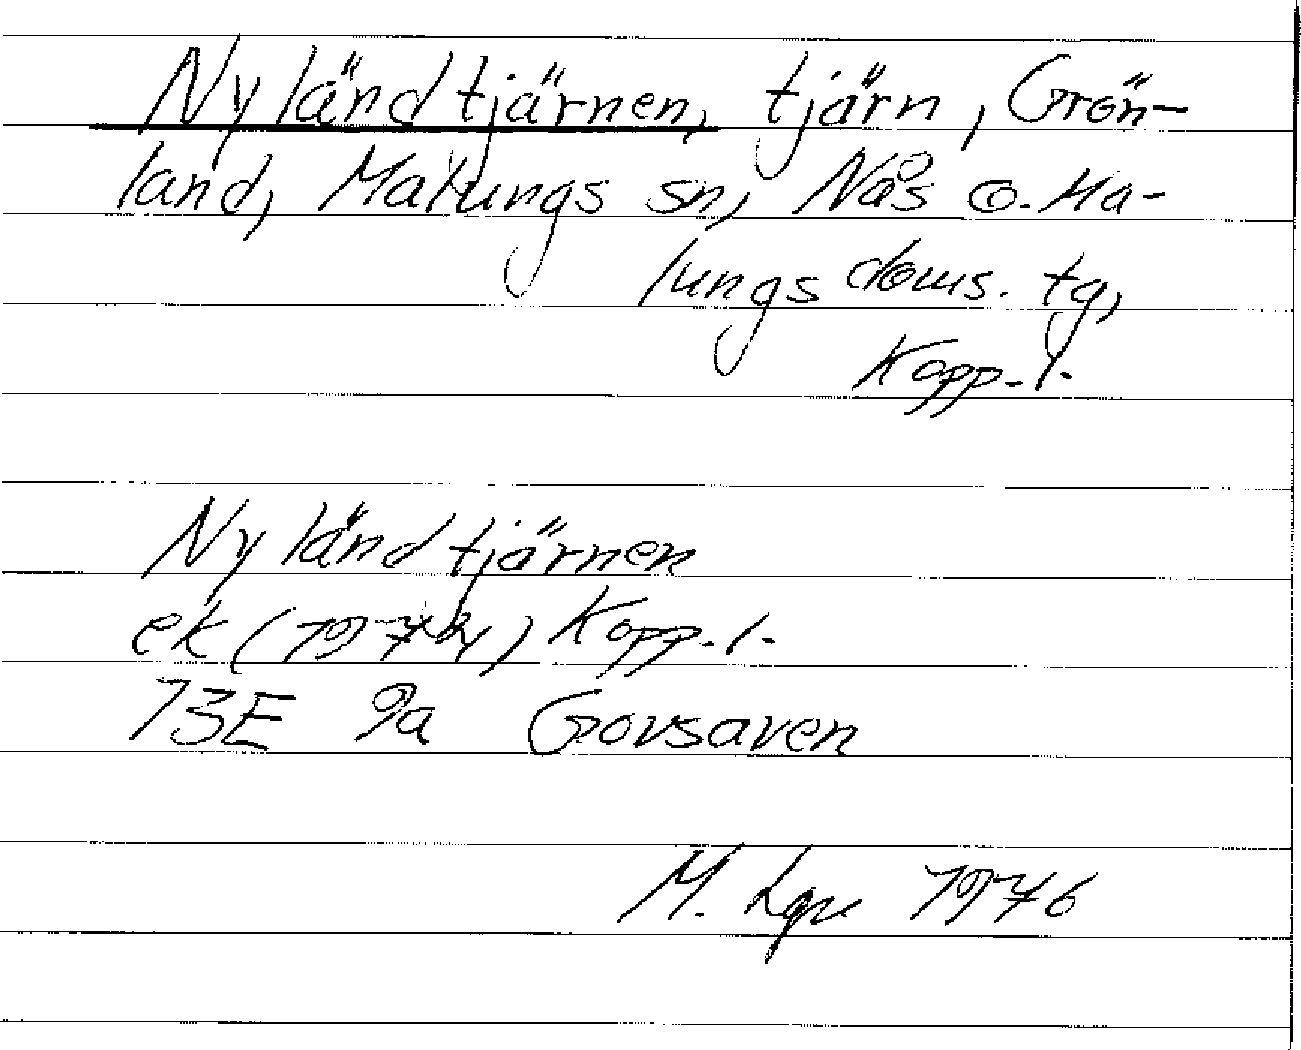 Nyländtjärnen, tjärn, Grön-
land, Malungs sn, Nås o. Ma-
lungs doms. tg,
Kopp. l.
Nyländtjärnen
ek (1974) Kopp. l.
13E 9a Govsaven
M. Lgn 1976